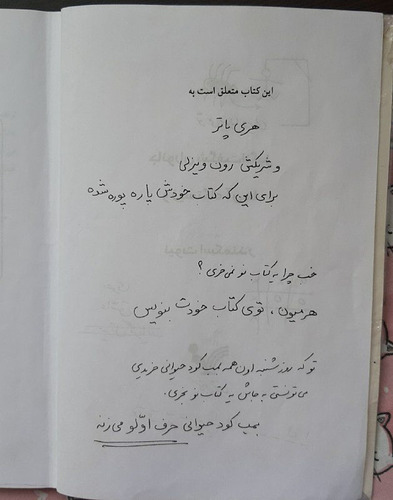 این کتاب متعلق است به
هری پاتر
و شریکش رون ویزلی
برای این که کتاب خودش پاره پوره شده
خب چرا یه کتاب نو نمی‌خری؟
هرمیون، توی کتاب خودت بنویس
تو که روز شنبه اون همه بمب کود حیوانی خریدی
می‌تونستی به جاش یه کتاب نو بخری.
بمب کود حیوانی حرف اوّلو می‌زنه